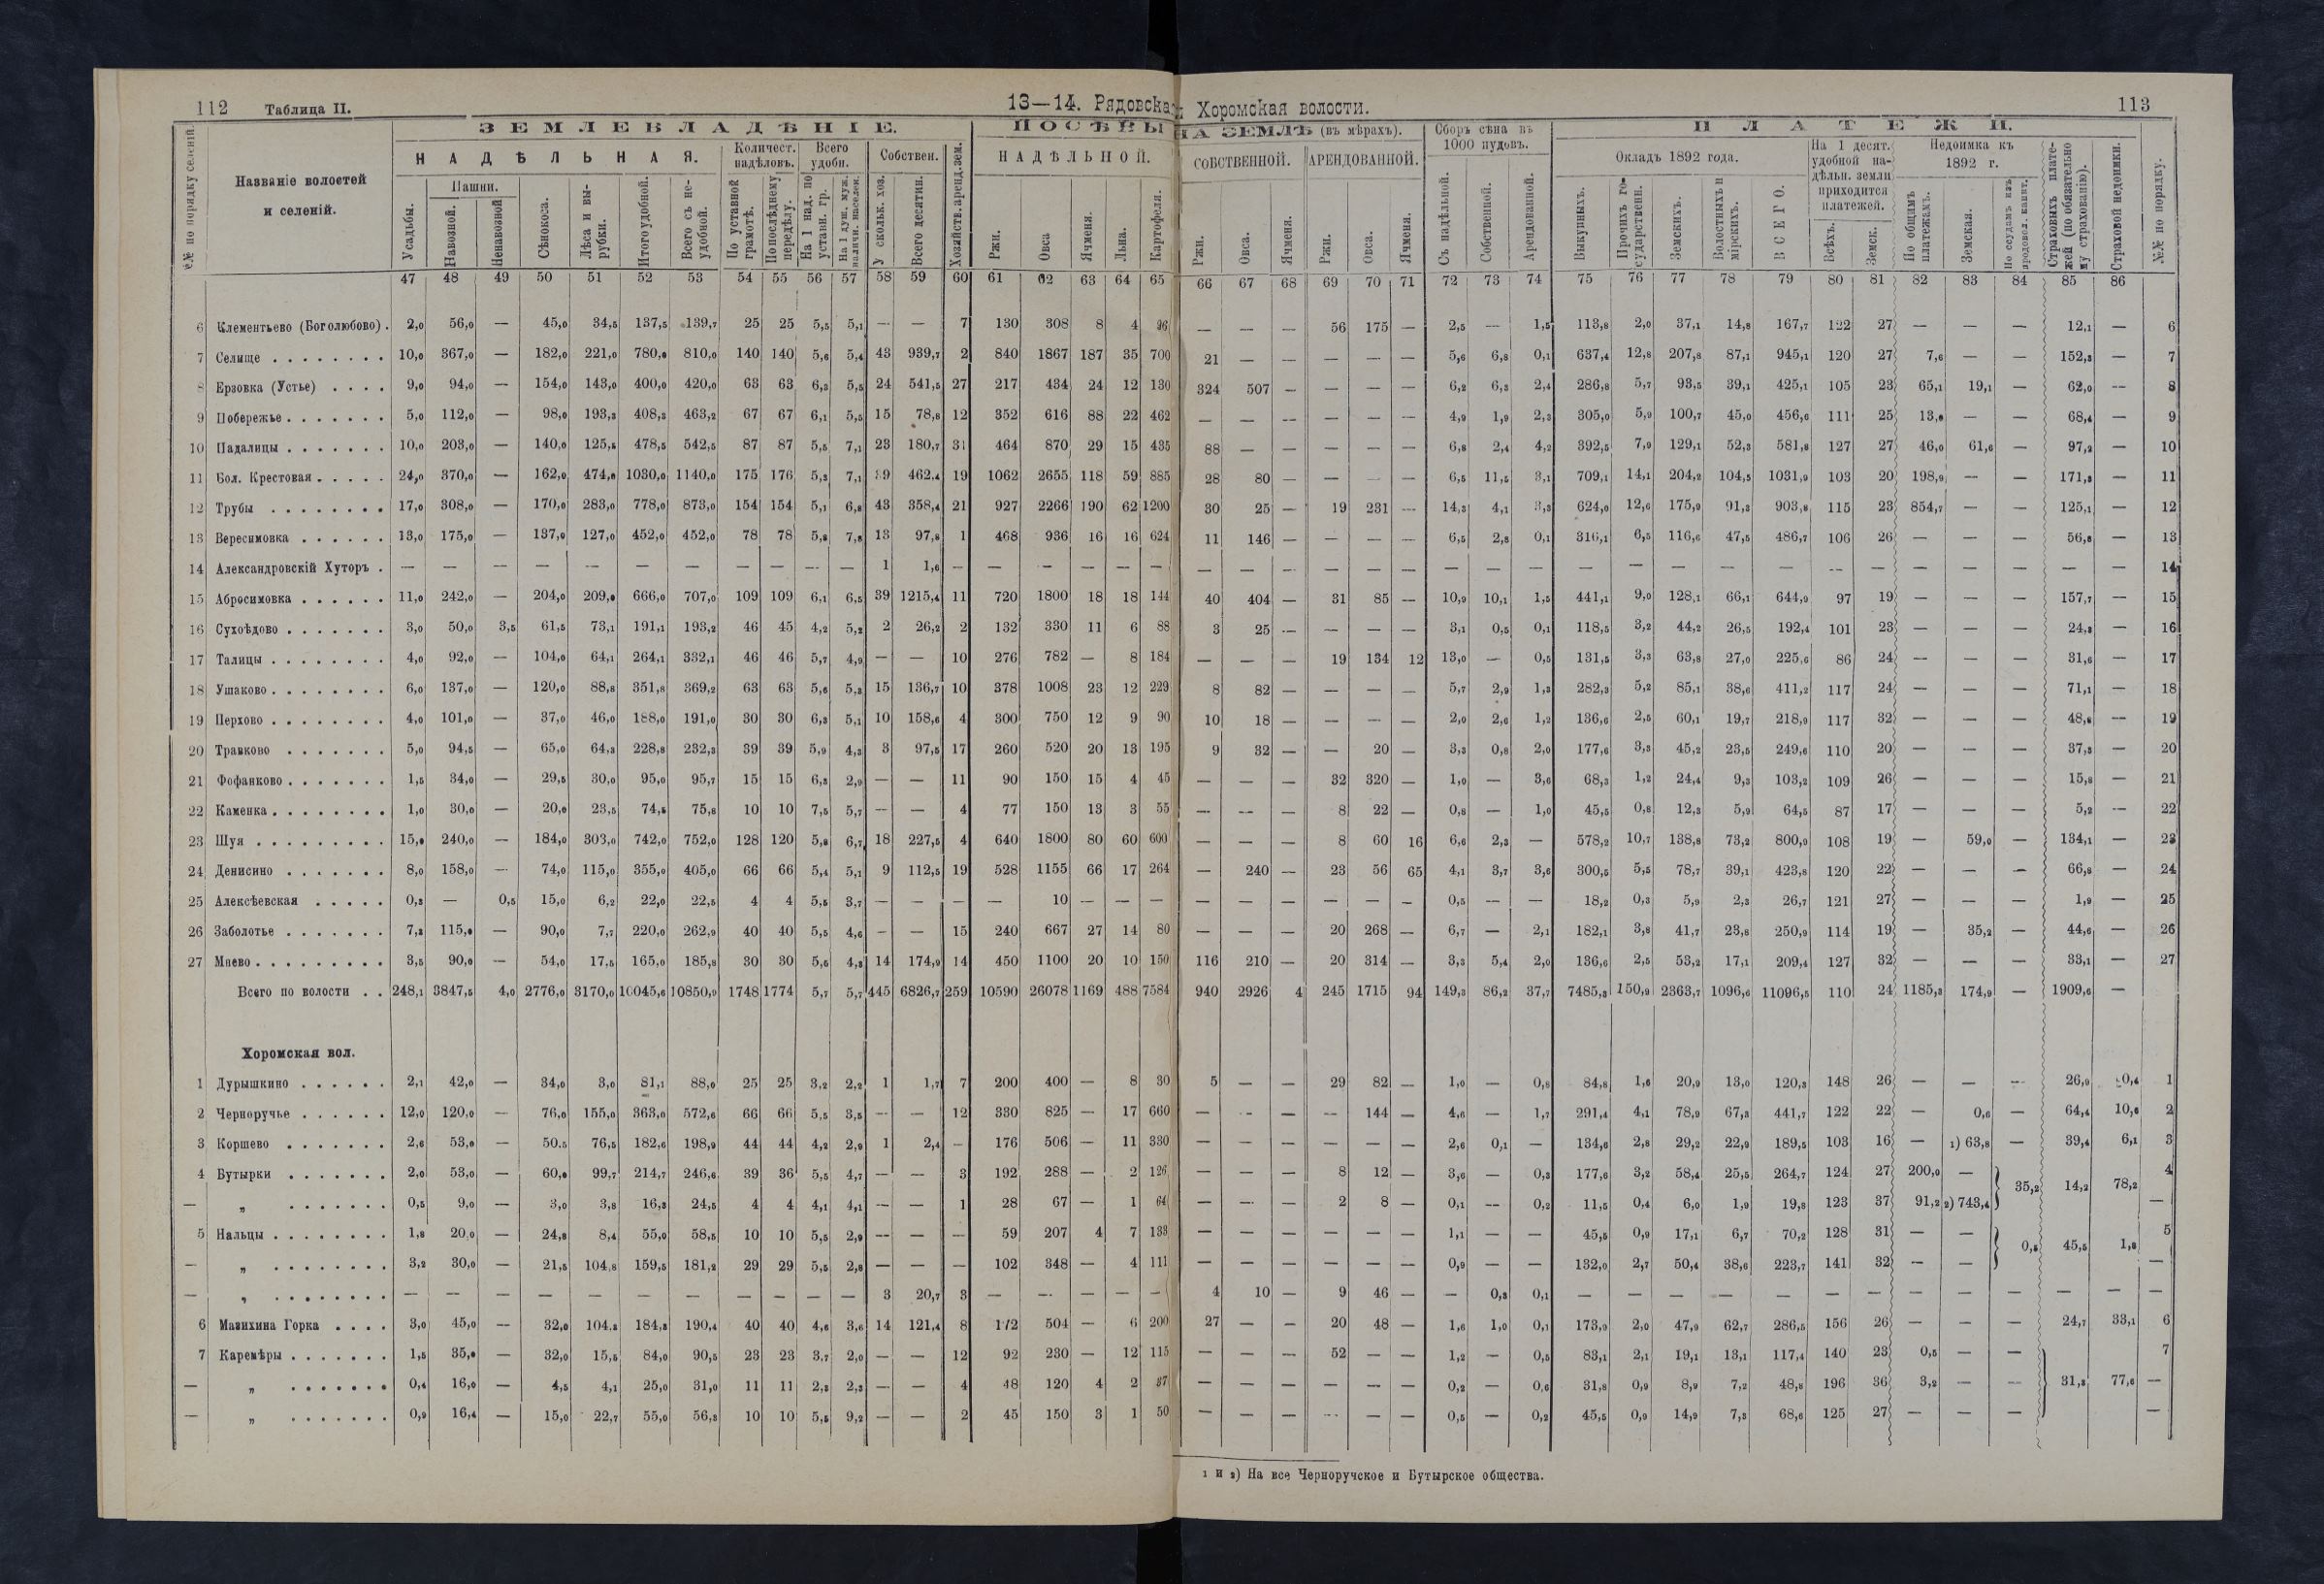 112 Таблица II. 13—14. Рядовская Хоромская волости. 113
З Е М Л Е В Л А Д Ѣ Н І Е. П О С Ѣ В Ы НА ЗЕМЛѢ (въ мѣрахъ). Сборъ сѣна въ 1000 пудовъ. П Л А Т Е Ж И.
№№ по порядку селеній. Названіе волостей и селеній. Н А Д Ѣ Л Ь Н А Я. Количест. надѣловъ. Всего удобн. Собствен. Хозяйств. аренд. зем. Н А Д Ѣ Л Ь Н О Й. СОБСТВЕННОЙ. АРЕНДОВАННОЙ. Окладъ 1892 года. На 1 десят. удобной надѣльн. земли приходится платежей. Недоимка къ 1892 г. Страховыхъ платежей (по обязательному страхованію). Страховой недоимки. №№ по порядку.
Усадьбы. Пашни. Навозной. Ненавозной Сѣнокоса. Лѣса и вырубки. Итого удобной. Всего съ неудобной. По уставной грамотѣ. По послѣднему передѣлу. На 1 над. по уставн. гр. На 1 душ. муж. наличн. населен. У скольк. хоз. Всего десятин. Ржи. Овса Ячменя. Льна. Картофеля. Ржи. Овса. Ячменя. Ржи. Овса. Ячменя. Съ надѣльной. Собственной. Арендованной. Выкупныхъ. Прочихъ государственн. Земскихъ. Волостныхъ и мірскихъ. В С Е Г О. Всѣхъ. Земск. По общимъ платежамъ. Земская. По ссудамъ изъ продовол. капит.
47 48 49 50 51 52 53 54 55 56 57 58 59 60 61 62 63 64 65 66 67 68 69 70 71 72 73 74 75 76 77 78 79 80 81 82 83 84 85 86
6 Клементьево (Боголюбово) . 2,0 56,0 — 45,0 34,5 137,5 139,7 25 25 5,5 5,1 — — 7 130 308 8 4 96 — — — 56 175 — 2,5 — 1,5 113,8 2,0 37,1 14,8 167,7 122 27 — — — 12,1 — 6
7 Селище . . . . . . . . 10,0 367,0 — 182,0 221,0 780,0 810,0 140 140 5,6 5,4 43 939,7 2 840 1867 187 35 700 21 — — — — — 5,6 6,8 0,1 637,4 12,8 207,8 87,1 945,1 120 27 7,6 — — 152,3 — 7
8 Ерзовка (Устье) . . . . 9,0 94,0 — 154,0 143,0 400,0 420,0 63 63 6,3 5,5 24 541,5 27 217 434 24 12 130 324 507 — — — — 6,2 6,3 2,4 286,8 5,7 93,5 39,1 425,1 105 23 65,1 19,1 — 62,0 — 8
9 Побережье . . . . . . . 5,0 112,0 — 98,0 193,3 408,3 463,2 67 67 6,1 5,5 15 78,8 12 352 616 88 22 462 — — — — — — 4,9 1,9 2,3 305,0 5,9 100,7 45,0 456,6 111 25 13,0 — — 68,4 — 9
10 Падалицы . . . . . . . 10,0 203,0 — 140,0 125,5 478,5 542,5 87 87 5,5 7,1 23 180,7 31 464 870 29 15 435 88 — — — — — 6,8 2,4 4,2 392,5 7,9 129,1 52,3 581,8 127 27 46,0 61,6 — 97,2 — 10
11 Бол. Крестовая . . . . . 24,0 370,0 — 162,0 474,0 1030,0 1140,0 175 176 5,3 7,1 89 462,4 19 1062 2655 118 59 885 28 80 — — — — 6,5 11,5 3,1 709,1 14,1 204,2 104,5 1031,9 103 20 198,9 — — 171,3 — 11
12 Трубы . . . . . . . . 17,0 308,0 — 170,0 283,0 778,0 873,0 154 154 5,1 6,8 43 358,4 21 927 2266 190 62 1200 30 25 — 19 231 — 14,3 4,1 3,3 624,0 12,6 175,9 91,3 903,8 115 23 854,7 — — 125,1 — 12
13 Вересимовка . . . . . . 13,0 175,0 — 137,0 127,0 452,0 452,0 78 78 5,8 7,8 13 97,8 1 468 936 16 16 624 11 146 — — — — 6,5 2,8 0,1 316,1 6,5 116,6 47,5 486,7 106 26 — — — 56,8 — 13
14 Александровскій Хуторъ . — — — — — — — — — — — 1 1,6 — — — — — — — — — — — — — — — — — — — — — — — — — — — 14
15 Абросимовка . . . . . . 11,0 242,0 — 204,0 209,0 666,0 707,0 109 109 6,1 6,5 39 1215,4 11 720 1800 18 18 144 40 404 — 31 85 — 10,9 10,1 1,5 441,1 9,0 128,1 66,1 644,9 97 19 — — — 157,7 — 15
16 Сухоѣдово . . . . . . . 3,0 50,0 3,5 61,5 73,1 191,1 193,2 46 45 4,2 5,2 2 26,2 2 132 330 11 6 88 3 25 — — — — 3,1 0,5 0,1 118,5 3,2 44,2 26,5 192,4 101 23 — — — 24,3 — 16
17 Талицы . . . . . . . . 4,0 92,0 — 104,0 64,1 264,1 332,1 46 46 5,7 4,9 — — 10 276 782 — 8 184 — — — 19 134 12 13,0 — 0,5 131,5 3,3 63,8 27,0 225,6 86 24 — — — 31,6 — 17
18 Ушаково . . . . . . . . 6,0 137,0 — 120,0 88,8 351,8 369,2 63 63 5,6 5,3 15 136,7 10 378 1008 23 12 229 8 82 — — — — 5,7 2,9 1,3 282,3 5,2 85,1 38,6 411,2 117 24 — — — 71,1 — 18
19 Перхово . . . . . . . . 4,0 101,0 — 37,0 46,0 188,0 191,0 30 30 6,3 5,1 10 158,6 4 300 750 12 9 90 10 18 — — — — 2,0 2,6 1,2 136,6 2,5 60,1 19,7 218,9 117 32 — — — 48,8 — 19
20 Травково . . . . . . . 5,0 94,5 — 65,0 64,3 228,8 232,3 39 39 5,9 4,3 3 97,5 17 260 520 20 13 195 9 32 — — 20 — 3,3 0,8 2,0 177,6 3,3 45,2 23,5 249,6 110 20 — — — 37,3 — 20
21 Фофанково . . . . . . . 1,5 34,0 — 29,5 30,0 95,0 95,7 15 15 6,3 2,9 — — 11 90 150 15 4 45 — — — 32 320 — 1,0 — 3,6 68,3 1,2 24,4 9,3 103,2 109 26 — — — 15,8 — 21
22 Каменка . . . . . . . . 1,0 30,0 — 20,0 23,5 74,5 75,8 10 10 7,5 5,7 — — 4 77 150 13 3 55 — — — 8 22 — 0,8 — 1,0 45,5 0,8 12,3 5,9 64,5 87 17 — — — 5,2 — 22
23 Шуя . . . . . . . . . 15,0 240,0 — 184,0 303,0 742,0 752,0 128 120 5,8 6,7 18 227,5 4 640 1800 80 60 600 — — — 8 60 16 6,6 2,3 — 578,2 10,7 138,8 73,2 800,9 108 19 — 59,0 — 134,1 — 23
24 Денисино . . . . . . . 8,0 158,0 — 74,0 115,0 355,0 405,0 66 66 5,4 5,1 9 112,5 19 528 1155 66 17 264 — 240 — 23 56 65 4,1 3,7 3,6 300,5 5,5 78,7 39,1 423,8 120 22 — — — 66,8 — 24
25 Алексѣевская . . . . . 0,3 — 0,5 15,0 6,2 22,0 22,5 4 4 5,5 3,7 — — — — 10 — — — — — — — — — 0,5 — — 18,2 0,3 5,9 2,3 26,7 121 27 — — — 1,9 — 25
26 Заболотье . . . . . . . 7,3 115,0 — 90,0 7,7 220,0 262,9 40 40 5,5 4,6 — — 15 240 667 27 14 80 — — — 20 268 — 6,7 — 2,1 182,1 3,8 41,7 23,8 250,9 114 19 — 35,2 — 44,6 — 26
27 Миево . . . . . . . . . 3,5 90,0 — 54,0 17,5 165,0 185,8 30 30 5,6 4,3 14 174,9 14 450 1100 20 10 150 116 210 — 20 314 — 3,3 5,4 2,0 136,6 2,5 53,2 17,1 209,4 127 32 — — — 33,1 — 27
Всего по волости . . 248,1 3847,5 4,0 2776,0 3170,0 10045,6 10850,9 1748 1774 5,7 5,7 445 6826,7 259 10590 26078 1169 488 7584 940 2926 4 245 1715 94 149,3 86,2 37,7 7485,3 150,9 2363,7 1096,6 11096,5 110 24 1185,3 174,9 — 1909,6 —
Хоромская вол.
1 Дурышкино . . . . . . 2,1 42,0 — 34,0 3,0 81,1 88,0 25 25 3,2 2,2 1 1,7 7 200 400 — 8 30 5 — — 29 82 — 1,0 — 0,8 84,8 1,6 20,9 13,0 120,3 148 26 — — — 26,9 0,4 1
2 Черноручье . . . . . . 12,0 120,0 — 76,0 155,0 363,0 572,6 66 66 5,5 3,5 — — 12 330 825 — 17 660 — — — — 144 — 4,6 — 1,7 291,4 4,1 78,9 67,3 441,7 122 22 — 0,6 — 64,4 10,6 2
3 Коршево . . . . . . . 2,6 53,0 — 50,5 76,5 182,6 198,9 44 44 4,2 2,9 1 2,4 — 176 506 — 11 330 — — — — — — 2,6 0,1 — 134,6 2,8 29,2 22,9 189,5 103 16 — 1) 63,8 — 39,4 6,1 3
4 Бутырки . . . . . . . 2,0 53,0 — 60,0 99,7 214,7 246,6 39 36 5,5 4,7 — — 3 192 288 — 2 126 — — — 8 12 — 3,6 — 0,3 177,6 3,2 58,4 25,5 264,7 124 27 200,0 — 35,2 14,2 78,2 4
— „ . . . . . . . 0,5 9,0 — 3,0 3,8 16,3 24,5 4 4 4,1 4,1 — — 1 28 67 — 1 64 — — — 2 8 — 0,1 — 0,2 11,5 0,4 6,0 1,9 19,8 123 37 91,2 2) 743,4 —
5 Нальцы . . . . . . . . 1,8 20,0 — 24,8 8,4 55,0 58,5 10 10 5,5 2,9 — — — 59 207 4 7 133 — — — — — — 1,1 — — 45,5 0,9 17,1 6,7 70,2 128 31 — — 0,5 45,5 1,8 5
— „ . . . . . . . . 3,2 30,0 — 21,5 104,8 159,5 181,2 29 29 5,5 2,8 — — — 102 348 — 4 111 — — — — — — 0,9 — — 132,0 2,7 50,4 38,6 223,7 141 32 — — —
— „ . . . . . . . . — — — — — — — — — — — 3 20,7 3 — — — — — 4 10 — 9 46 — — 0,3 0,1 — — — — — — — — — — — — —
6 Мазихина Горка . . . . 3,0 45,0 — 32,0 104,3 184,3 190,4 40 40 4,6 3,6 14 121,4 8 172 504 — 6 200 27 — — 20 48 — 1,6 1,0 0,1 173,9 2,0 47,9 62,7 286,5 156 26 — — — 24,7 33,1 6
7 Каремѣры . . . . . . . 1,5 35,0 — 32,0 15,5 84,0 90,5 23 23 3,7 2,0 — — 12 92 230 — 12 115 — — — 52 — — 1,2 — 0,5 83,1 2,1 19,1 13,1 117,4 140 23 0,5 — — 7
— „ . . . . . . . 0,4 16,0 — 4,5 4,1 25,0 31,0 11 11 2,3 2,3 — — 4 48 120 4 2 37 — — — — — — 0,2 — 0,6 31,8 0,9 8,9 7,2 48,8 196 36 3,2 — — 31,3 77,6 —
— „ . . . . . . . 0,9 16,4 — 15,0 22,7 55,0 56,3 10 10 5,5 9,2 — — 2 45 150 3 1 50 — — — — — — 0,5 — 0,2 45,5 0,9 14,9 7,3 68,6 125 27 — — — —
1 и 2) На все Черноручское и Бутырское общества.